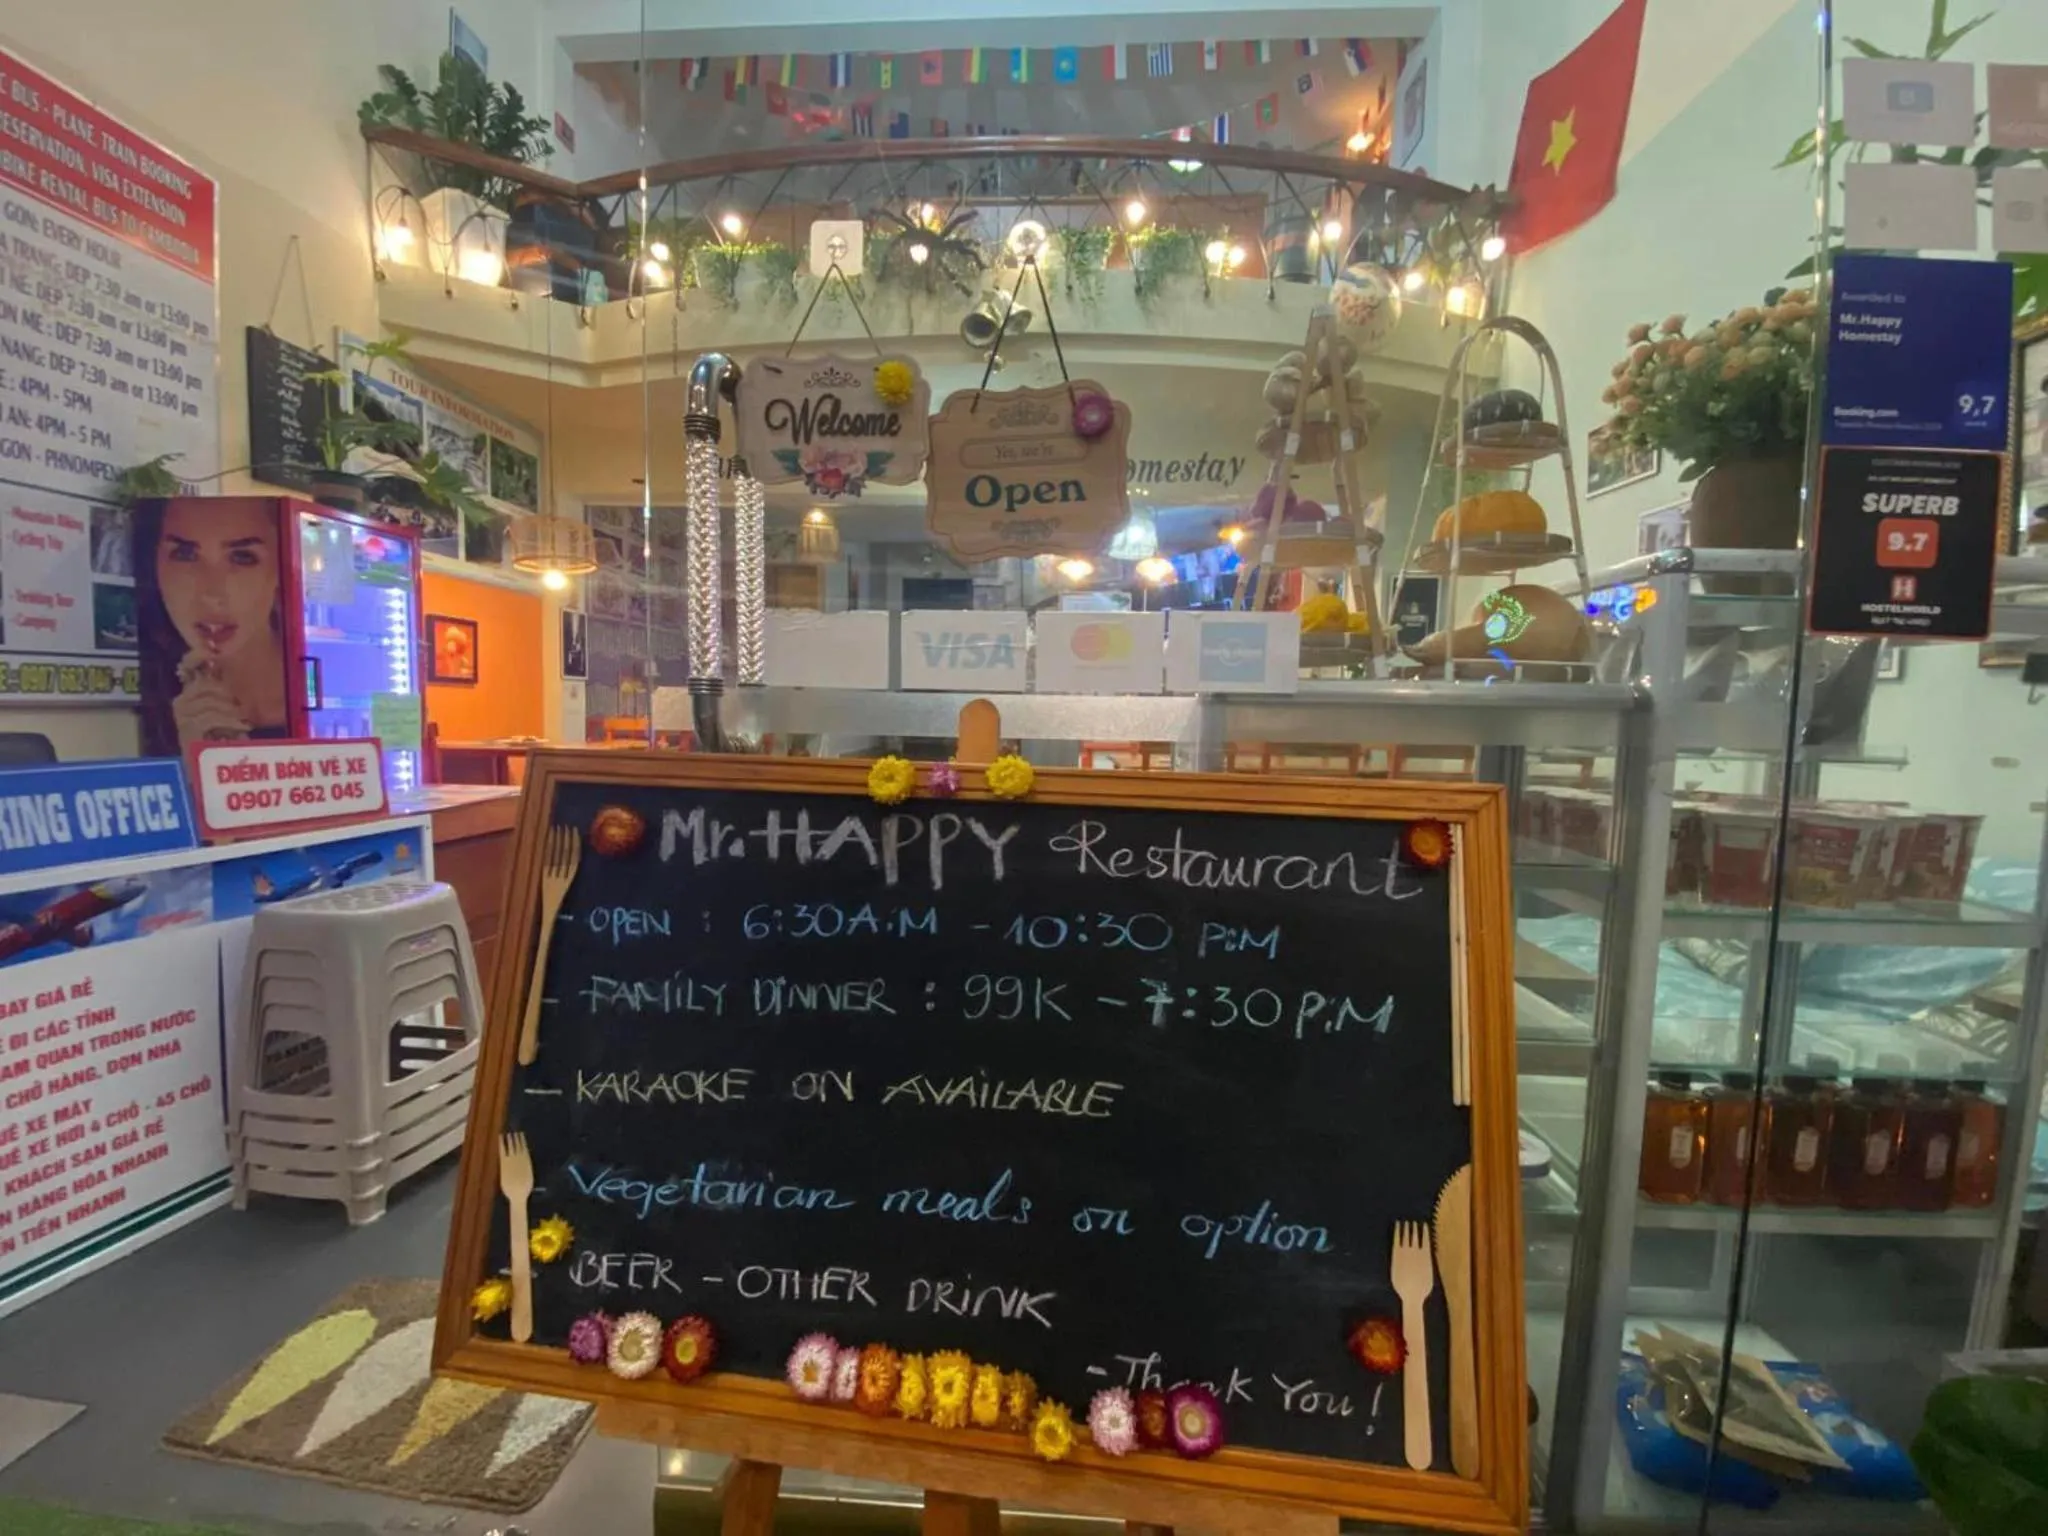 C BUS - PLANE, TRAIN BOOKING
RESERVATION, VISA EXTENSION
BIKE RENTAL BUS TO CAMBODIA
GON: EVERY HOUR
A TRANG: DEP 7:30 am or 13:00 pm
I NE: DEP 7:30 am or 13:00 pm
ON ME: DEP 7:30 am or 13:00 pm
NANG: DEP 7:30 am or 13:00 pm
E: 4PM - 5PM
I AN: 4PM - 5 PM
GON - PHNOMPENH
- Mountain Biking
- Cycling Trip
- Trekking Tour
- Camping
TOUR INFORMATION
Welcome
Yes, we're
Open
omestay
VISA
Awarded to
Mr.Happy
Homestay
Booking.com
9,7
SUPERB
9.7
H
HOSTELWORLD
KING OFFICE
ĐIỂM BÁN VÉ XE
0907 662 045
BAY GIÁ RẺ
E ĐI CÁC TỈNH
AM QUAN TRONG NƯỚC
CHỞ HÀNG, DỌN NHÀ
UÊ XE MÁY
UÊ XE HƠI 4 CHỖ - 45 CHỖ
KHÁCH SẠN GIÁ RẺ
N HÀNG HÓA NHANH
N TIỀN NHANH
Mr.HAPPY Restaurant
- OPEN : 6:30A.M - 10:30 P:M
- FAMILY DINNER : 99K - 7:30 P.M
- KARAOKE ON AVAILABLE
- Vegetarian meals on option
- BEER - OTHER DRINK
- Thank You!